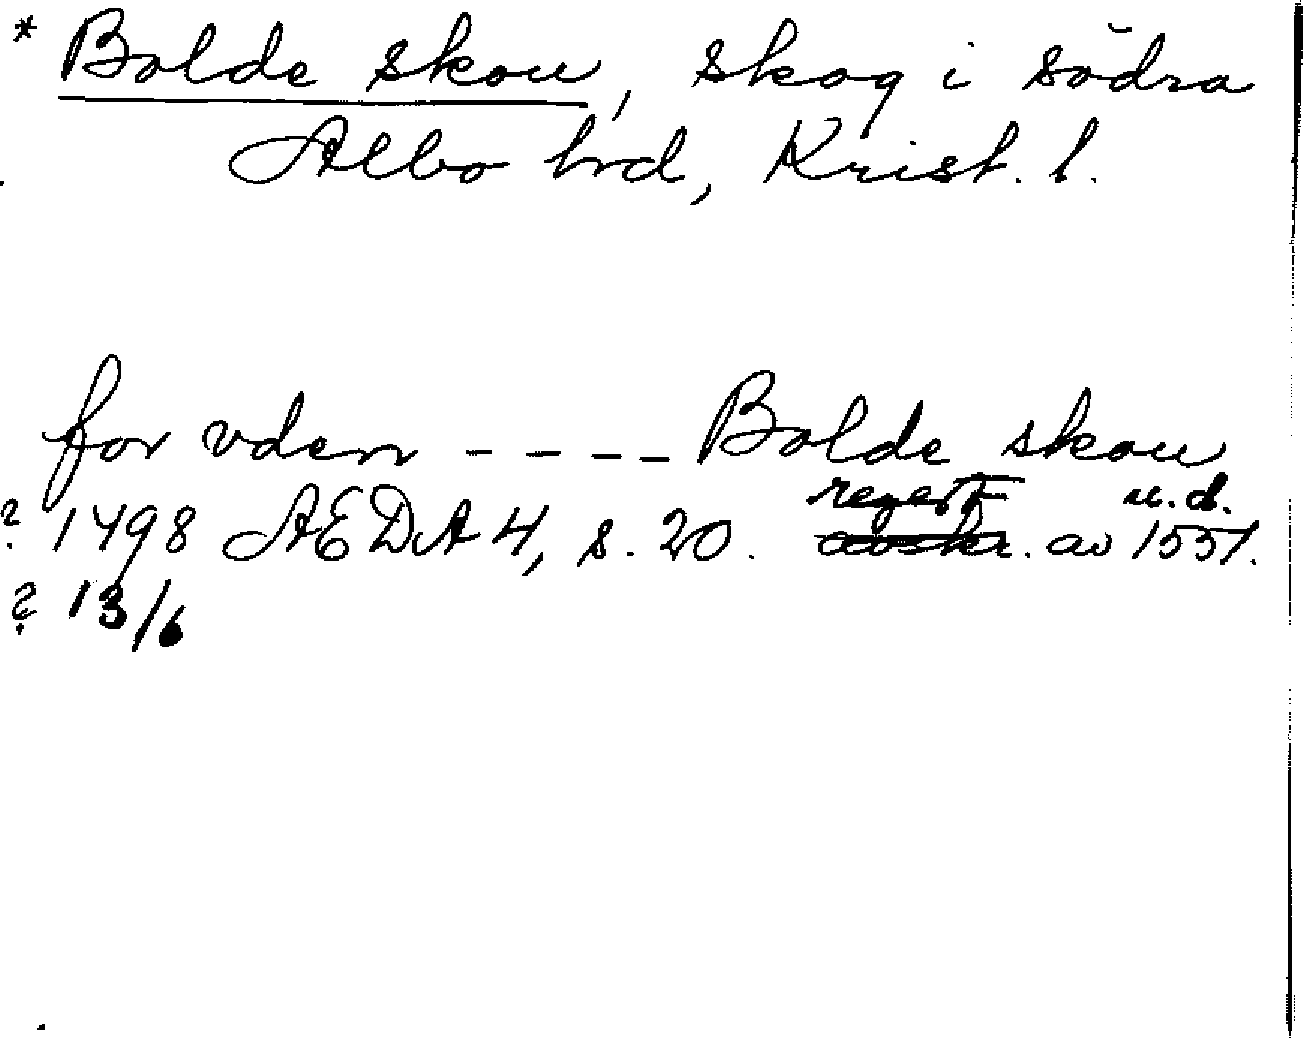 * Bolde skou, skog i södra
Albo hrd, Krist. l.
for vden ---- Bolde skou
regest u.d.
? 1498 AEDA 4, s. 20. avskr. av 1551.
? 13/6